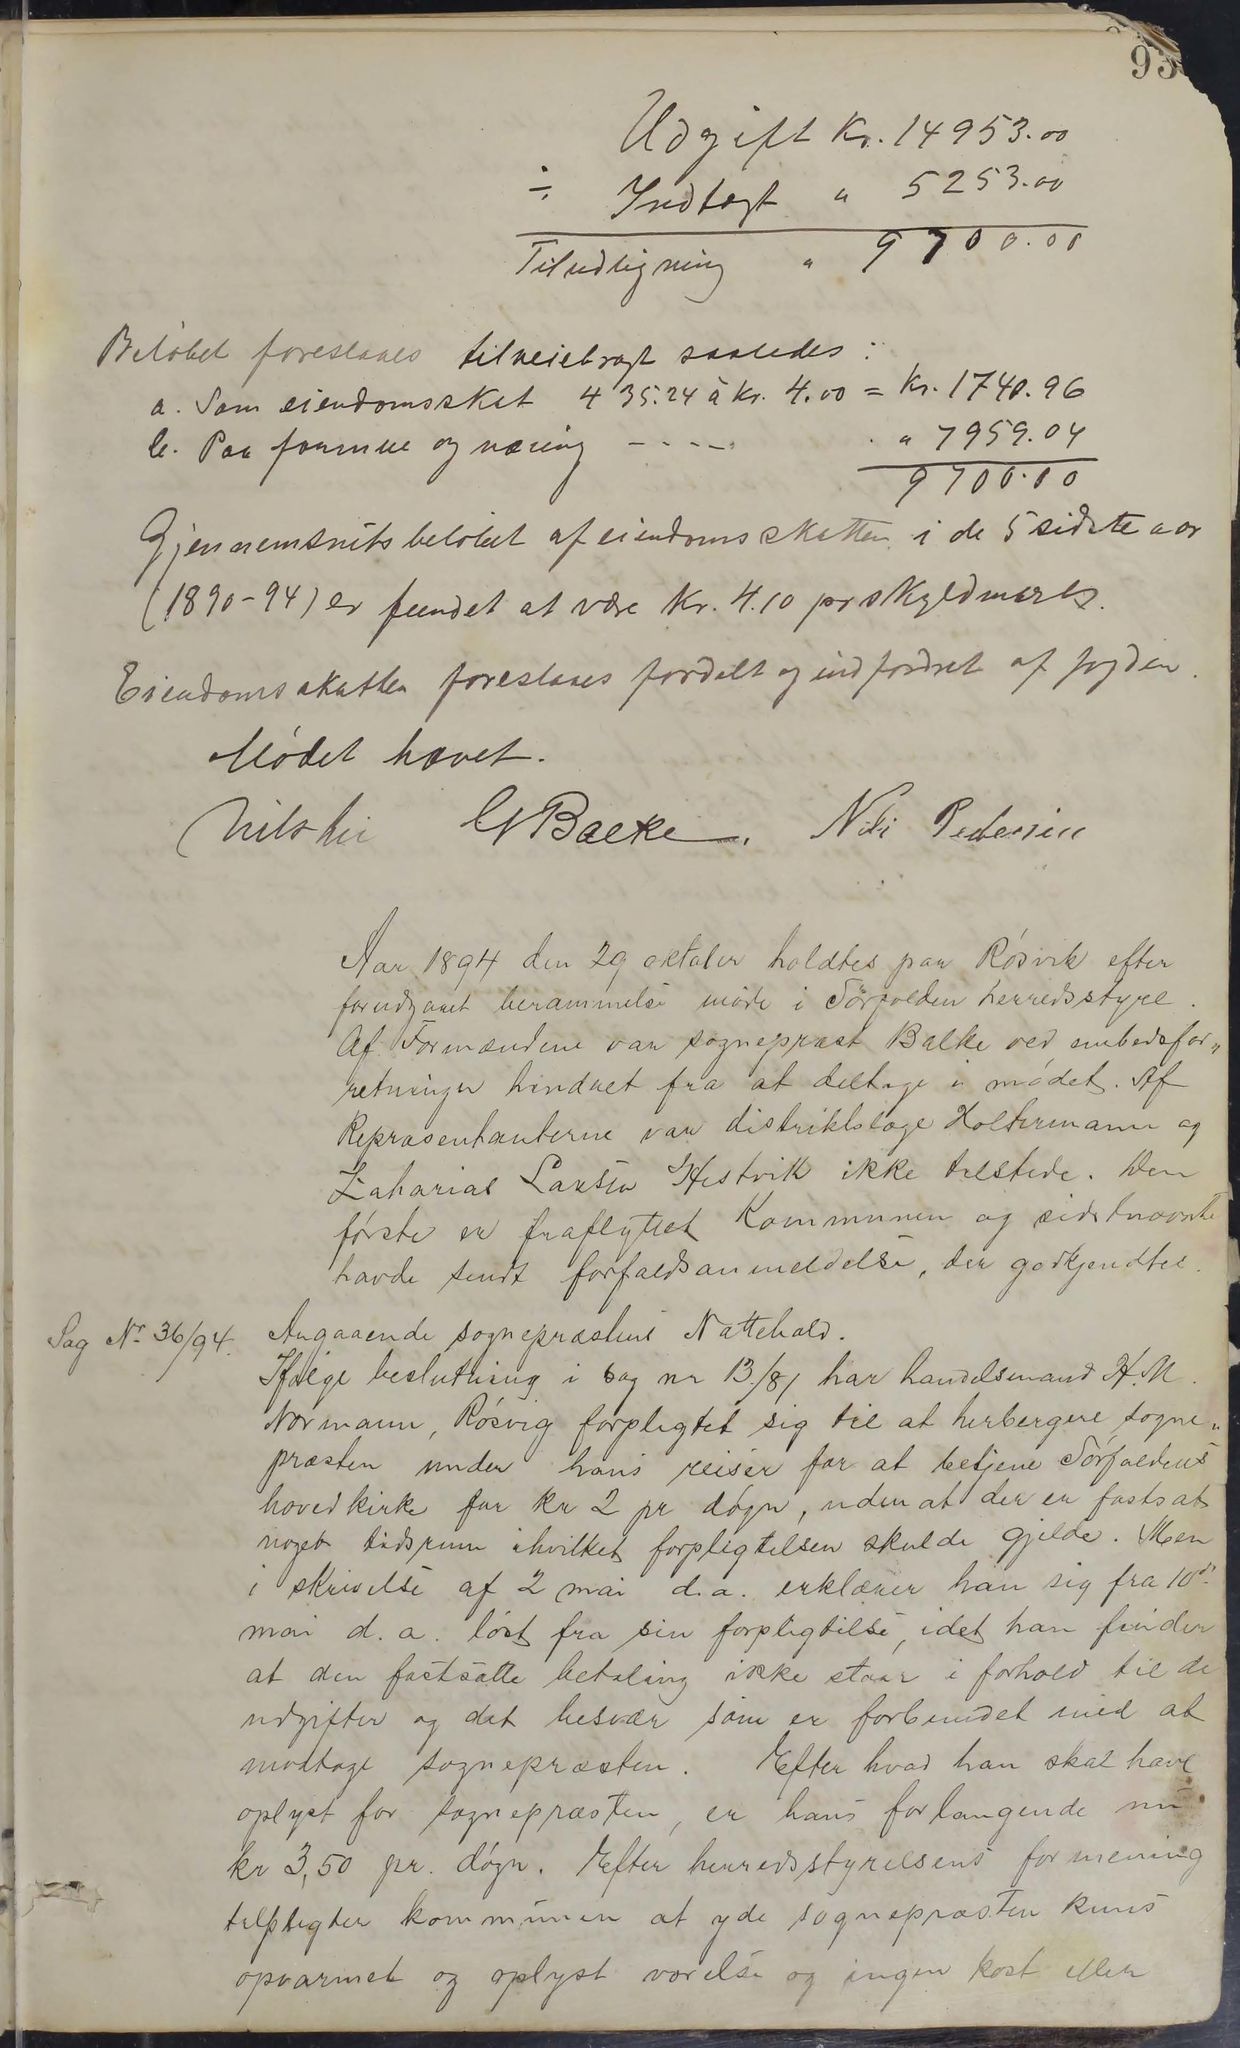 93
Udgift Kr. 14953.00
÷ Indtægt " 5253.00
Til udligning " 9700.00
Beløbet foreslaaes tilveiebragt saaledes:
a. Som eiendomsskat 435.24 à Kr. 4.00 = Kr. 1740.96
b. Paa formue og næring - - - - " 7959.04
9700.00
Gjennemsnitsbeløbet af eiendomsskatten i de 5 sidste aar
(1890-94) er fundet at være Kr. 4.10 pr skyldmark.
Eiendomsskatten foreslaaes fordelt og indfordret af fogden.
Mødet hævet.
Balke. Nils Pedersen
Aar 1894 den 29 oktober holdtes paa Røsvik efter
forudgaaet berammelse møde i Sörfolden herredsstyre.
Af Formændene var sognepræst Balke ved embedsfor„
retninger hindret fra at deltage i mødet. Af
Repræsentanterne var distriktslæge Holtermann og
Zaharias Larsen Hestvik ikke tilstede. Den
første er fraflyttet Kommunen og sidstnævnte
havde sendt forfaldsanmeldelse, der godkjendtes.
Sag Nr 36/94. Angaaende sogneprestens Nattehold.
Ifølge beslutning i sag nr 13/81 har handelsmand H. M.
Normann, Røsvig forpligtet sig til at herbergere sogne„
præsten under hans reiser for at betjene Sörfoldens
hovedkirke for kr 2 pr døgn, uden at der er fastsat
noget tidsrum ihvilket forpligtelsen skulde gjelde. Men
i skrivelse af 2 mai d.a. erklærer han sig fra 10d.
mai d.a. løst fra sin forpligtelse, idet han finder
at den fastsatte betaling ikke staar i forhold til de
udgifter og det besvær som er forbundet med at
modtage sognepræsten. Efter hvad han skal have
oplyst for sognepræsten, er hans forlangende nu
kr 3,50 pr. døgn. Efter herredsstyrelsens formening
tilpligter kommunen at yde sognepræsten kuns
opvarmet og oplyst værelse og ingen kost eller